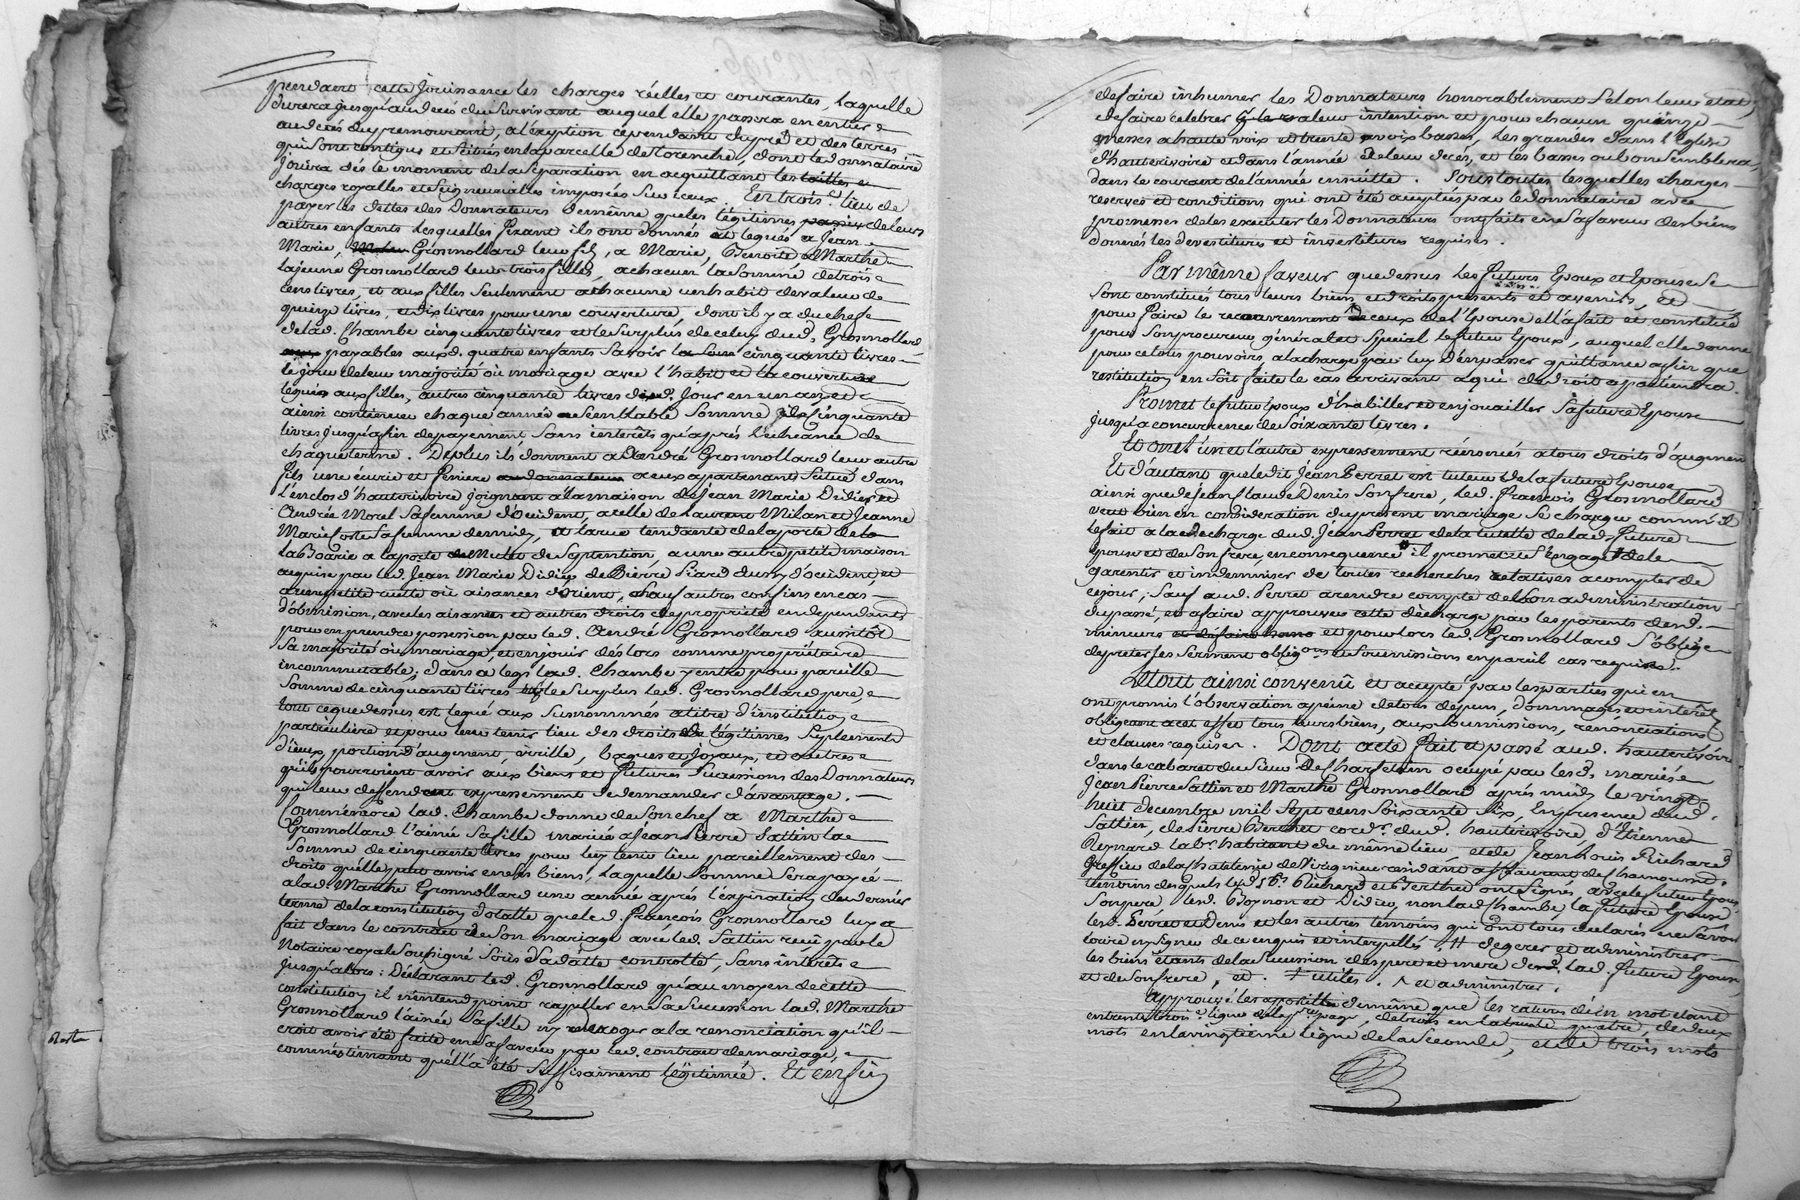 pendant cette Jouissance les charges réelles et courantes, laquelle
durera jusqu'au decés du survivant auquel elle passera en entier
au decés du premourant, a l'exeption cependant du pré et des terres
qui sont contigus et scitués en la parcelle de Lorenche, dont le donnataire
Jouira dés le moment de la séparation en acquittant les tailles
charges royalles et seigneurialles imposées sur iceux. En trois.e lieu de
payer les dettes des Donnateurs de même que les légitimes de leurs
autres enfants lesquelles ils ont donnés et legués a Jean
Marie, Grosmollard leur fils, a Marie, Benoite & Marthe
la jeune Grosmollard leurs trois filles, a chacun la somme de trois
cens livres, et aux filles seulement a chacune un habit de valeur de
quinze livres, et dix livres pour une couverture, dont il y a du chef
de lad. Chambe cinquante livres et le surplus de celuy dud. Grosmollard
payables auxd. quatre enfants savoir cinquante livres
le jour de leur majorité ou mariage avec l'habit et la couverture
legués aux filles, autres cinquante livres dud. Jour en un an et
ainsi continuer chaque année semblable somme de cinquante
livres jusqu'a fin de payement sans interêts qu'aprés l'echeance de
chaque terme. De plus ils donnent a André Grosmollard leur autre
fils une écurie et feniere a eux appartenants située dans
l'enclos d'hauterivoire joignant a la maison de Jean Marie Didier et
Andrée Morel sa femme d'occident, a celle de Laurent Milan et Jeanne
Marie Coste sa femme de midy, a la rue tendante de la porte de la
la Boarie a la porte de Mulet de septention, a une autre petite maison
acquise par led. Jean Marie Didier de Pierre Siard dud. d'occident et
a une petite ruette ou aisances d'orient, sauf autres confins en cas
d'obmission, avec les aisances et autres droits de propriété en dependants
pour en prendre possession par led. André Grosmollard aussitôt
sa majorité ou mariage, et en jouir dés lors comme propriétaire
incommutable; dans ce legs lad. Chambe y entre pour pareille
somme de cinquante livres le surplus led. Grosmollard pere,
tout ce que dessus est legué aux susnommés a titre d'institution
particuliere et pour leur tenir lieu des droits de légitimes suplements
d'iceux, portion d'augment, virille, bagues et joyaux, et autres
qu'ils pourroient avoir aux biens et futures successions des Donnateurs
qui leur deffendent expressement de demander d'avantage.
Commémore lad. Chambe donne de son chef a Marthe
Grosmollard l'ainée sa fille mariée a Jean Pierre Sattin la
somme de cinquante livres pour luy tenir lieu pareillement des
droits qu'elle peut avoir en ses biens, laquelle somme sera payée
a lad. Marthe Grosmollard une année aprés l'expiration du dernier
terme de la constitution dotalle que led. françois Grosmollard luy a
fait dans le contract de son mariage avec led. Sattin reçu par le
Notaire royal soussigné sous sa datte controllé, sans intérêts
jusqu'alors: Déclarant led. Grosmollard qu'au moyen de cette
constitution il n'entend point rapeller en sa succession lad. Marthe
Grosmollard l'ainée sa fille ny deroger a la renonciation qu'il
croit avoir été faite en sa faveur par led. contract de mariage,
comme estimant qu'ell'a été suffisament légitimée. Et enfin
Resta
de faire inhumer les Donnateurs honorablement selon leur état,
de faire célébrer a leur intention et pour chacun quinze
messes a haute voix et trente a voix basse, les grandes dans l'Eglise
d'hauterivoire et dans l'année de leur decés, et les basses ou bon semblera,
dans le courant de l'année ensuitte. Sous toutes lesquelles charges
reserves et conditions qui ont été acceptés par le donnataire avec
promesses de les executer les Donnateurs ont faits en sa faveur des biens
donnés les devestitures et investitures requises.
Par même faveur que dessus les futurs Epoux et Epouse se
sont constitués tous leurs biens et droits présents et avenirs, et
pour faire le recouvrement de ceux de l'Epouse ell'a fait et constitué
pour son procureur général et spécial le futur Epoux, auquel elle donne
pour ce tous pouvoirs, a la charge par luy d'en passer quittance afin que
restitution en soit faite le cas arrivant a qui de droit appartiendra.
Promet le futur Epoux d'habiller et enjouailler sa future Epouse
jusqu'a concurrence de soixante livres.
Et ont l'un et l'autre expressement réservés a tous droits d'augment
Et d'autant que ledit Jean Perret est tuteur de la future Epouse
ainsi que de Jean Claude Denis son frere, led. françois Grosmollard
veut bien en considération du present mariage se charger comme il
le fait a la decharge dud. Jean Perret de la tutelle de lad. future
Epouse et de son frere, en conséquence il promet et s'engage de le
garentir et indemniser de toutes recherches relatives a compter de
ce jour, sauf aud. Perret a rendre compte de son administration
du passé, et a faire approuver cette décharge par les parents desd.
mineurs et pour lors led. Grosmollard s'oblige
de preter les serment oblig.ons et soumissions en pareil cas requises.
Le tout ainsi convenû et accepté par les parties qui en
ont promis l'observation a peine de tous dépens, dommages et interêts
obligeant a cet effet tous leurs biens, aux soumissions, renonciations
et clauses requises. Dont acte fait et passé aud. hauterivoire
dans le cabaret du sieur Descharfetain occupé par lesd. mariés
Jean Pierre Sattin et Marthe Grosmollard aprés midy le vingt
huit decembre mil sept cens soixante six, En presence dud.
Sattin, de Pierre Berthet cord.r dud. hauterivoire, d'Etienne
Reynard lab.r habitant du même lieu et de Jean Louis Richard
Greffier de la chatelenie de Virigneux residant a st Laurent de Chamousset
temoins desquels led. s.r Richard et Berthet ont signés avec le futur Epoux
son pere lesd. Boynon et Didier, non lad. Chambe, la future Epouse
lesd. Perret et Denis et les autres temoins qui ont tous declarés ne savoir
écrire ny signer de ce enquis et interpellés. # de gerer et administrer
les biens étants de la succession des pere et mere de lad. future Epouse
et de son frere, et. + utiles. ^ et administrer.
approuvé les apostilles de même que les ratures d'un mot etant
en trente trois.e ligne de la p.re page, de trois en la trente quatre, de deux
mots en la vingtieme ligne de la seconde, et de trois mots